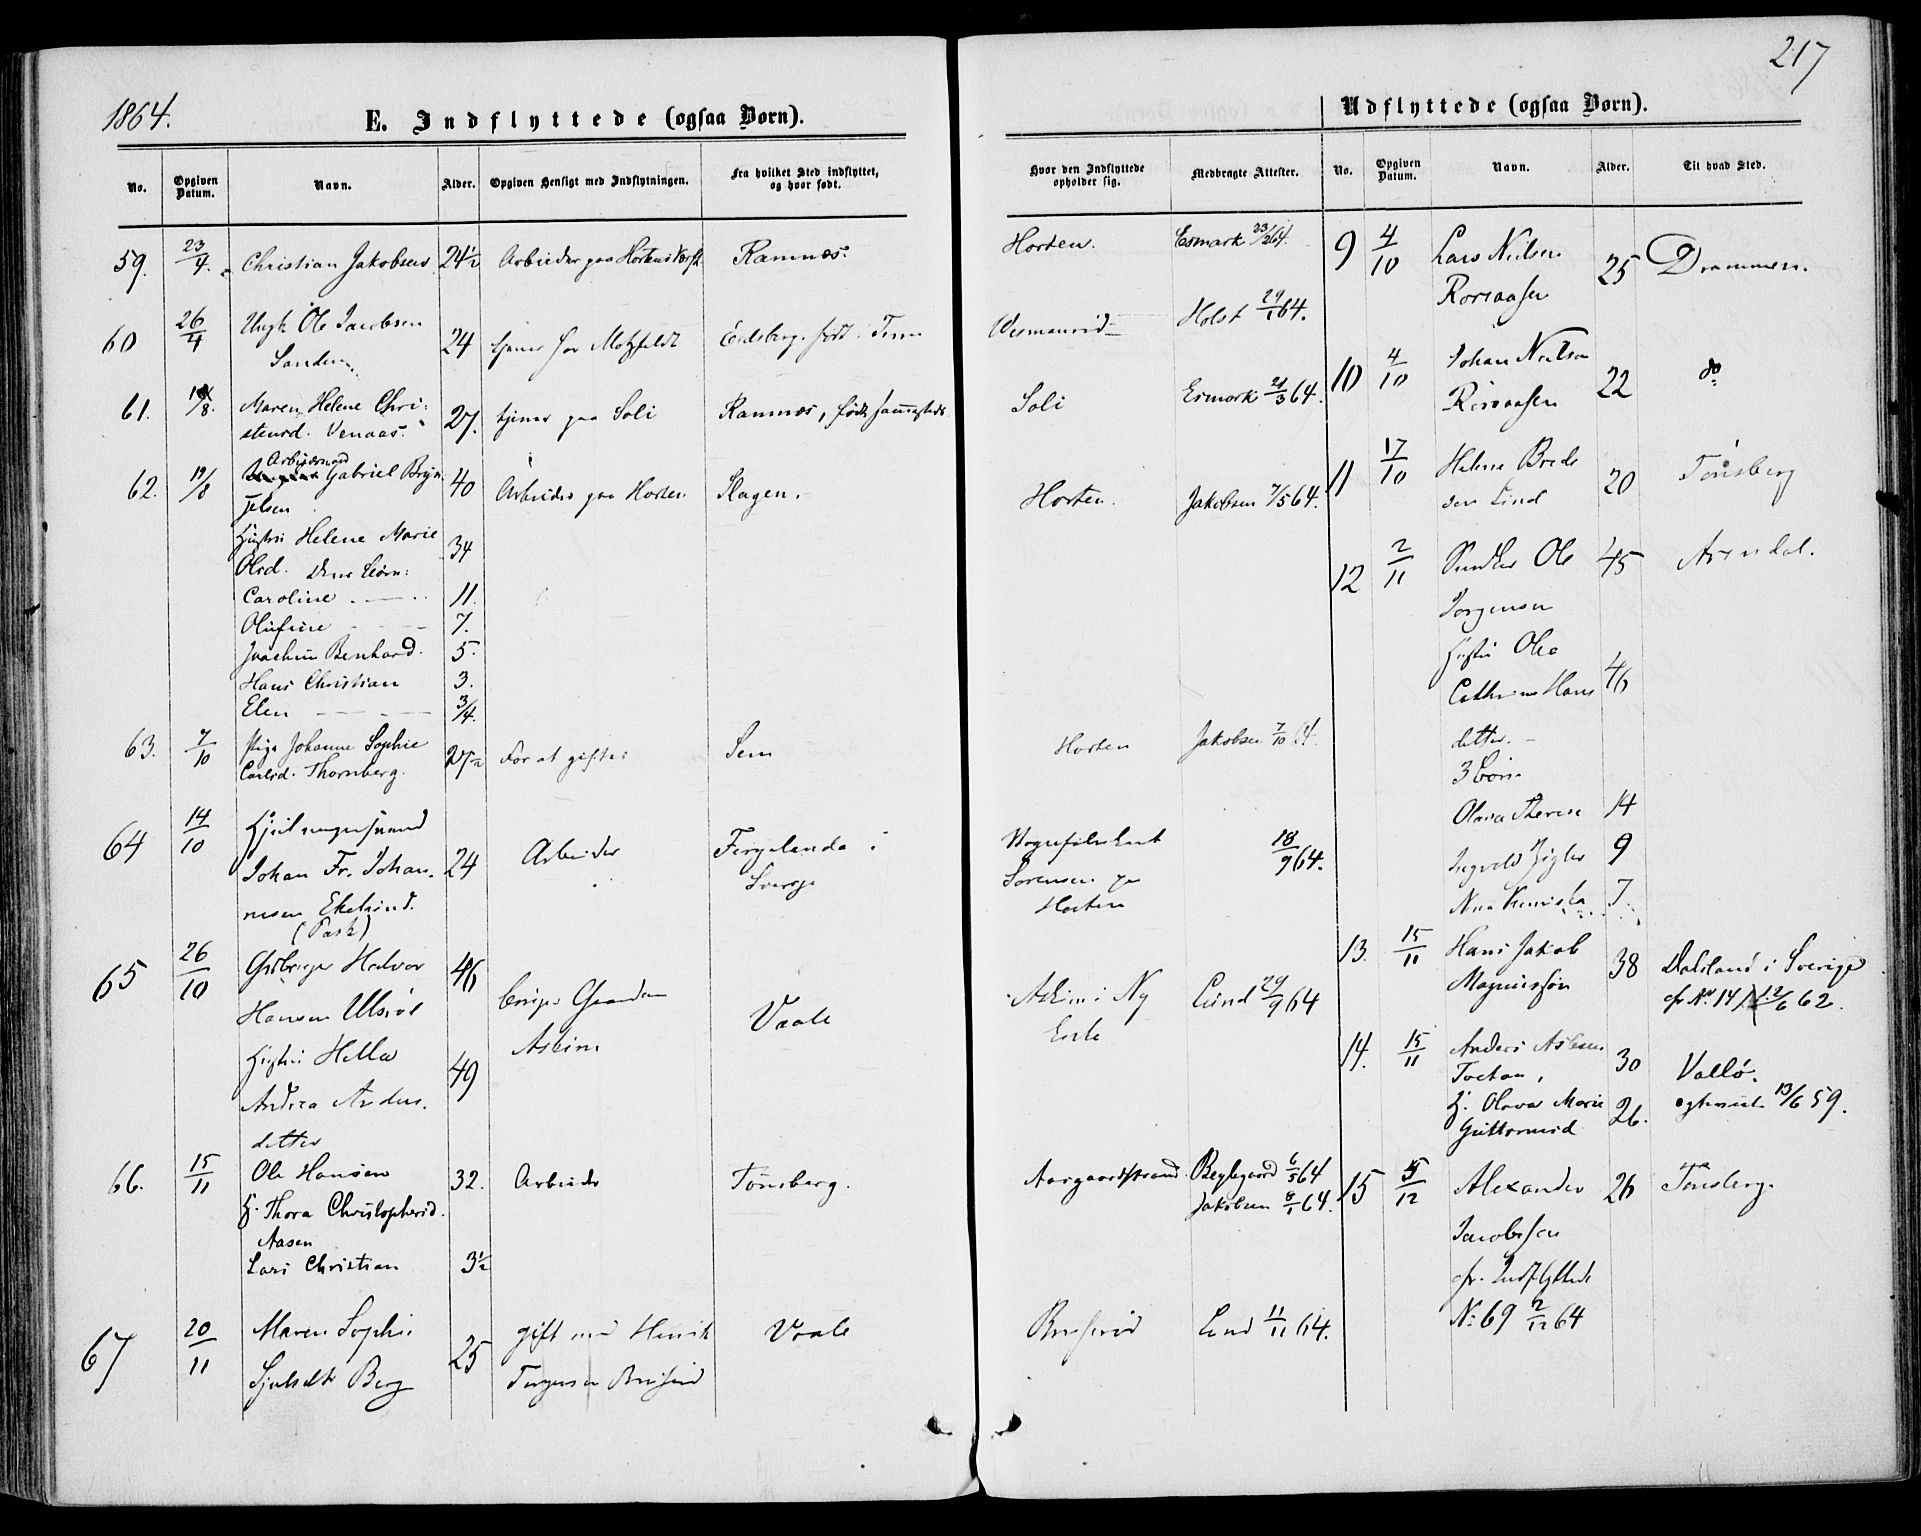 1864.
E. Indflyttede (ogsaa Børn).
No.
Opgiven Datum.
Navn.
Alder.
Opgiven Hensigt med Indflytningen.
Fra hvilket Sted indflyttet, og hvor født.
59. 23/4. Christian Jakobsen 24½ Arbeider paa Hortens Værft Ramnæs.
60 26/4 Ungk Ole Jacobsen 24 tjener for Motzfeldt Eidsberg. født i
Sanden
61. Maren Helene Chri- 27. tjener paa Soli Ramnæs, født sammesteds.
stensd. Venaas.
Arbeidsmand
62. 19/8 Gabriel Bryn- 40 Arbeider paa Horten Slagen.
jelsen
Hustru Helene Marie 34
Olsd. Deres Børn:
Caroline 11.
Olufine 7.
Joachim Benhard. 5.
Hans Christian 3.
Elen 3/4.
63. 7/10 Pige Johanne Sophie 27½ For at giftes Sem
Carlsd. Thornberg.
64 14/10
Johan Fr. Johan- 24 Arbeider i
nesen Ekelund. Sverge
(Pask)
65 26/10 Halvor 46
Hansen Vaale
Hustru Hella 49 Askim
Andrea Anders-
datter
66. 15/11 Ole Hansen 32. Arbeider Tønsberg.
H. Thora Christophersd.
Aasen
Lars Christian 3½
67 20/11 Maren Sophie 25 gift med Henrik Vaale
Berg
217
Udflyttede (ogsaa Børn).
Hvor den Indflyttede opholder sig.
Medbragte Attester.
No.
Opgiven Datum.
Navn.
Alder.
Til hvad Sted.
Horten. Esmark 23/2 64. 9 4/10 Lars Nilsen 25 Drammen.
Rorsaasen
Holst 29/1 64.
10 4/10 Johan Nielsen 22 do
Rorsaasen
Soli Esmark 21/3 64.
11 17/10 Helene Brede 20 Tønsberg
sen Lind
Horten. Jakobsen 7/5 64.
12 2/11 Ole 45 Arendal.
Jørgensen
Hustru Olea
Cathrine Hans 46
datter.
3 Børn
Olava Therese 14
Ingvald 9
7
Horten Jakobsen 7/10 64.
18/9 64.
Sørensen paa
Horten
13. 15/11 Hans Jakob 38 Dalsland i Sverige
Magnussøn cfr No 14 12/6 62.
Askim i Ny Lund 29/9 64
14. 15/11 Anders 30 Vallø.
H. Olava Marie 26. 13/6 59.
Guttormsd
Aasgaardstrand. 6/5 64
Jakobsen 8/1 64.
15 5/12 Alexander 26 Tønsberg.
Jacobssen
cfr. Indflyttede
No: 69 2/12 64
Lund 11/11 64.